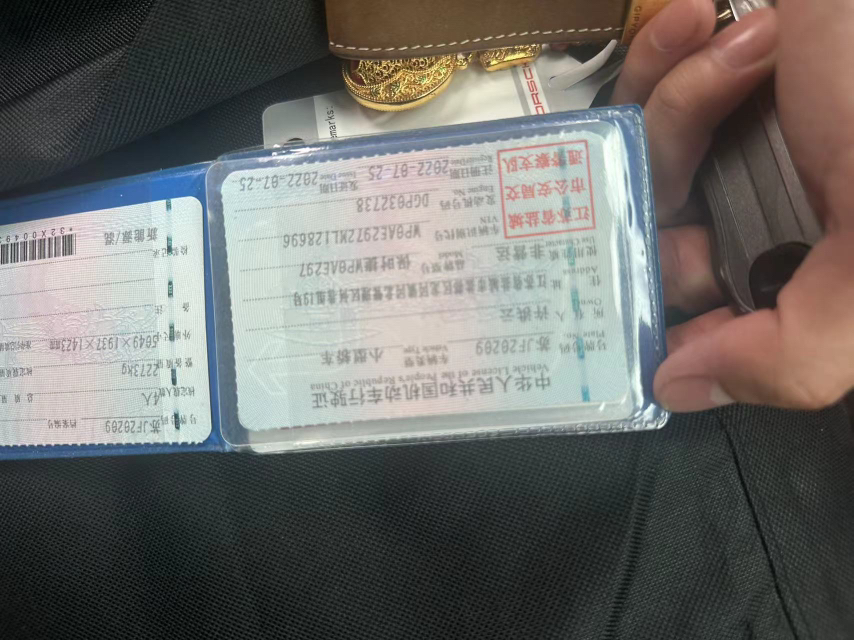 中华人民共和国机动车行驶证
Vehicle License of the People's Republic of China
号牌号码 苏JF20209 车辆类型 小型轿车
Plate No. Vehicle Type
所有人 许德云
Owner
住址
Address
使用性质 非营运 品牌型号 保时捷WP0AE297
Use Character Model
江苏省盐城
市公安局交
通警察支队
车辆识别代号 WP0AE2972ML128696
VIN
发动机号码 DGP032738
Engine No.
注册日期 2022-07-25 发证日期 2022-07-25
Register Date Issue Date
号牌号码 苏JF20209 档案编号
4人
2273kg
5049×1937×1423
备注
检验记录
新能源/混
emarks: